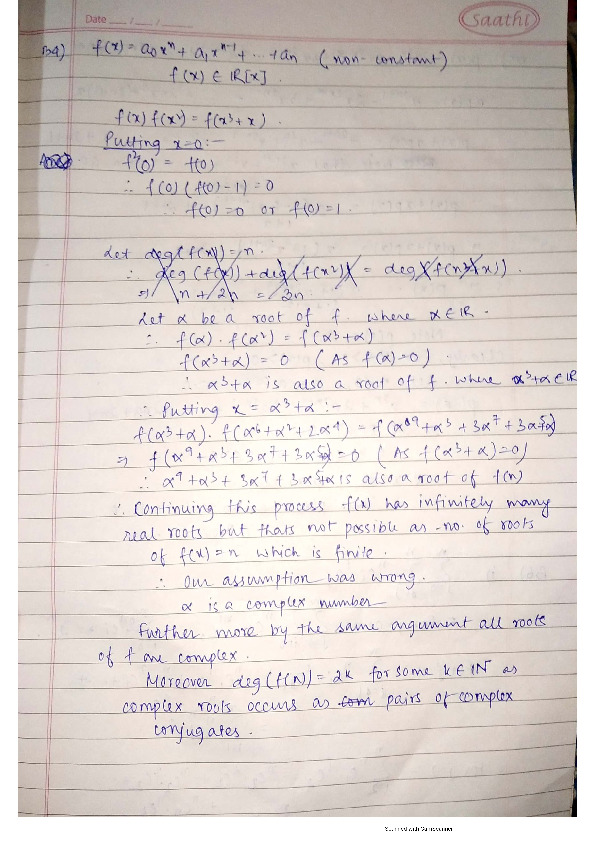 Date __/__/__
Saathi
B4) f(x) = a₀xⁿ + a₁xⁿ⁻¹ + ... + aₙ (non-constant)
f(x) ∈ ℝ[x].
f(x) f(x²) = f(x³+x).
Putting x=0:-
f²(0) = f(0)
∴ f(0) (f(0)-1) = 0
∴ f(0)=0 or f(0)=1.
Let deg(f(x))=n.
∴ deg(f(x)) + deg(f(x²)) = deg(f(x³+x)).
⇒ n + 2n = 3n.
Let α be a root of f. where α∈ℝ.
∴ f(α). f(α²) = f(α³+α)
f(α³+α) = 0 (As f(α)=0).
∴ α³+α is also a root of f. where α³+α∈ℝ
∴ Putting x = α³+α :-
f(α³+α). f(α⁶+α²+2α⁴) = f(α⁹+α³+3α⁷+3α⁵+α)
⇒ f(α⁹+α³+3α⁷+3α⁵+α)=0 (As f(α³+α)=0)
∴ α⁹+α³+3α⁷+3α⁵+α is also a root of f(x)
∴ Continuing this process f(x) has infinitely many
real roots but thats not possible as no. of roots
of f(x)=n which is finite.
∴ Our assumption was wrong.
α is a complex number
Further more by the same argument all roots
of f are complex.
Moreover deg(f(x))=2k for some k∈ℕ as
complex roots occurs as com pairs of complex
conjugates.
Scanned with CamScanner